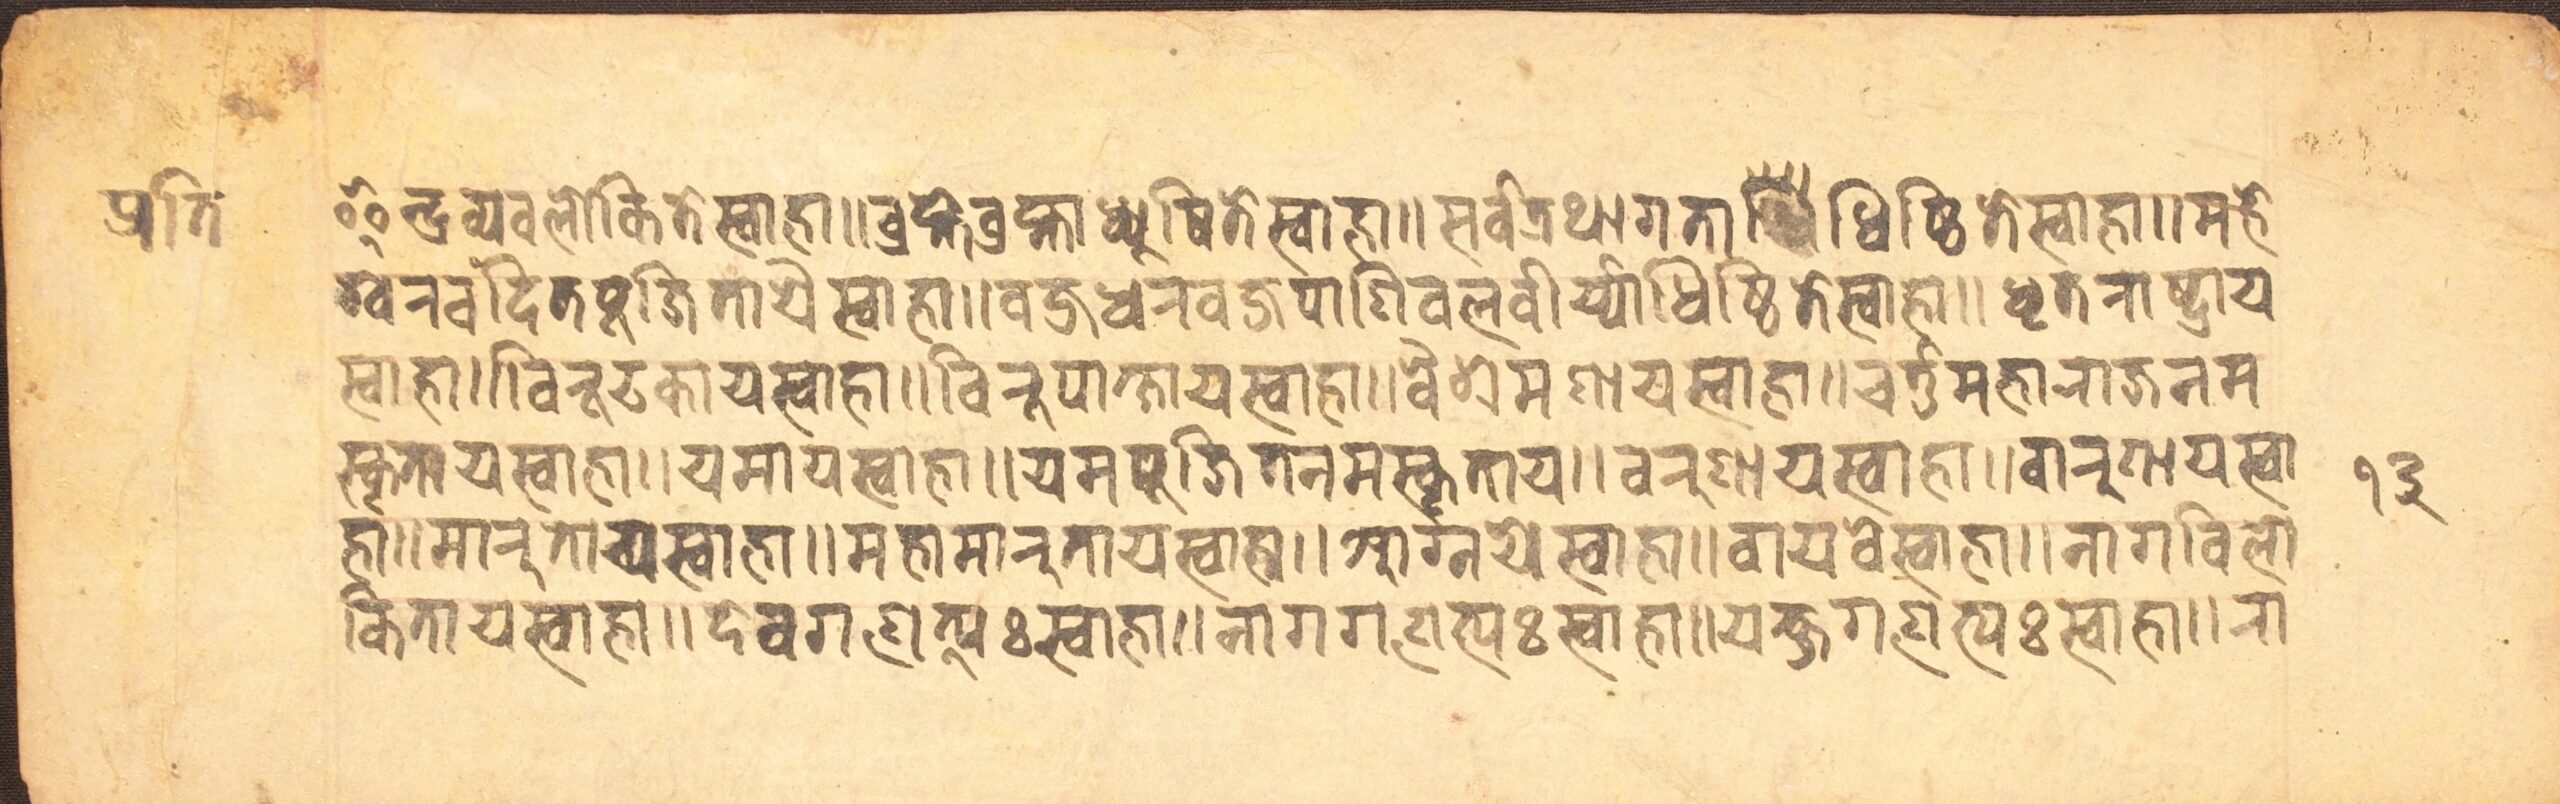 प्रति
इन्द्रव्यवलोकिते स्वाहा ॥ ब्रह्मे ब्रह्माध्युषिते स्वाहा ॥ सर्वतथागता धिष्ठिते स्वाहा ॥ महे
श्वरवंदितपूजितायै स्वाहा ॥ वज्रधरवज्रपाणिवलवीर्य्याधिष्ठिते स्वाहा ॥ धृतराष्ट्राय
स्वाहा ॥ विरूढकाय स्वाहा ॥ विरुपाक्षाय स्वाहा ॥ वैश्रमणाय स्वाहा ॥ चर्तुमहाराजनम
स्कृताय स्वाहा ॥ यमाय स्वाहा ॥ यमपूजितनमस्कृताय ॥ वरुणाय स्वाहा ॥ वारुताय स्वा
हा ॥ मारुताय स्वाहा ॥ महामारुताय स्वाहा ॥ आर्ग्नये स्वाहा ॥ वायवे स्वाहा ॥ नागविलो
किताय स्वाहा ॥ देवगणेत्यः स्वाहा ॥ नागगणेत्यः स्वाहा ॥ यक्षगणेत्यः स्वाहा ॥ रा
१३